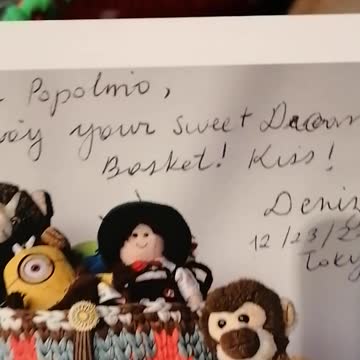 Popolmo,
joy your sweet Dream
Basket! Kiss!
Deniz
12/23/22
Toky